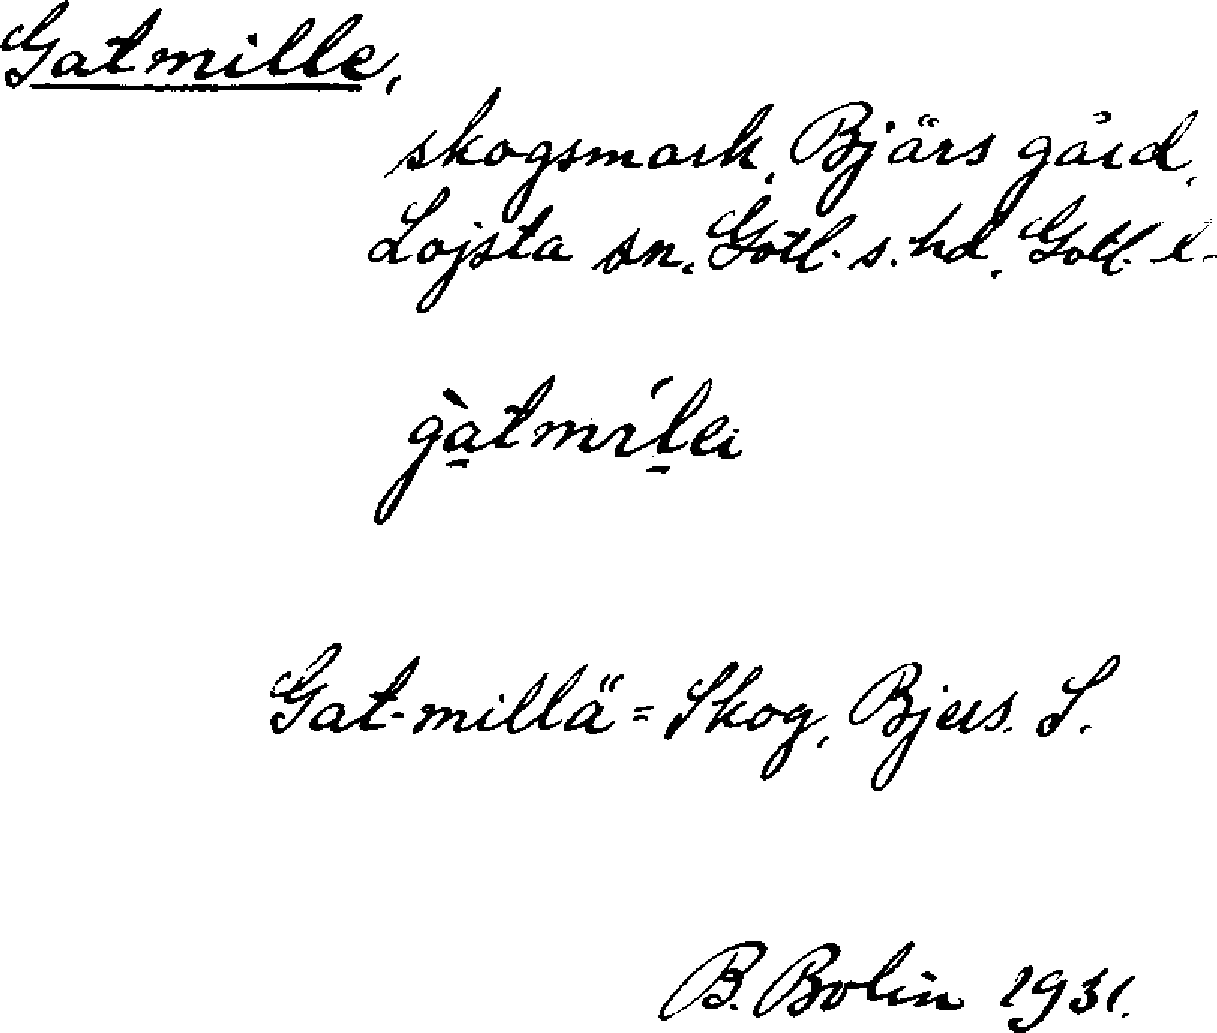 Gatmille,
skogsmark, Bjärs gård,
Lojsta sn, Gotl. s. hd, Gotl. l.
gàtmíla
Gat-millä = Skog, Bjers. S.
B. Bolin 1931.